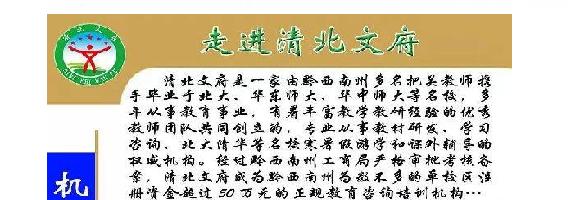 走进清北文府
清北文府是一家由黔西南州多名把关教师携
手毕业于北大、华东师大、华中师大等名校，多
年从事教育事业，有着丰富教学教研经验的优秀
教师团队共同创立的，专业从事教材研发、学习
咨询、北大清华等名校寒暑假游学和课外辅导的
权威机构。经过黔西南州工商局严格审批考核备
案，清北文府成为黔西南州为数不多的单校区注
册资金超过50万元的正规教育咨询培训机构…
机